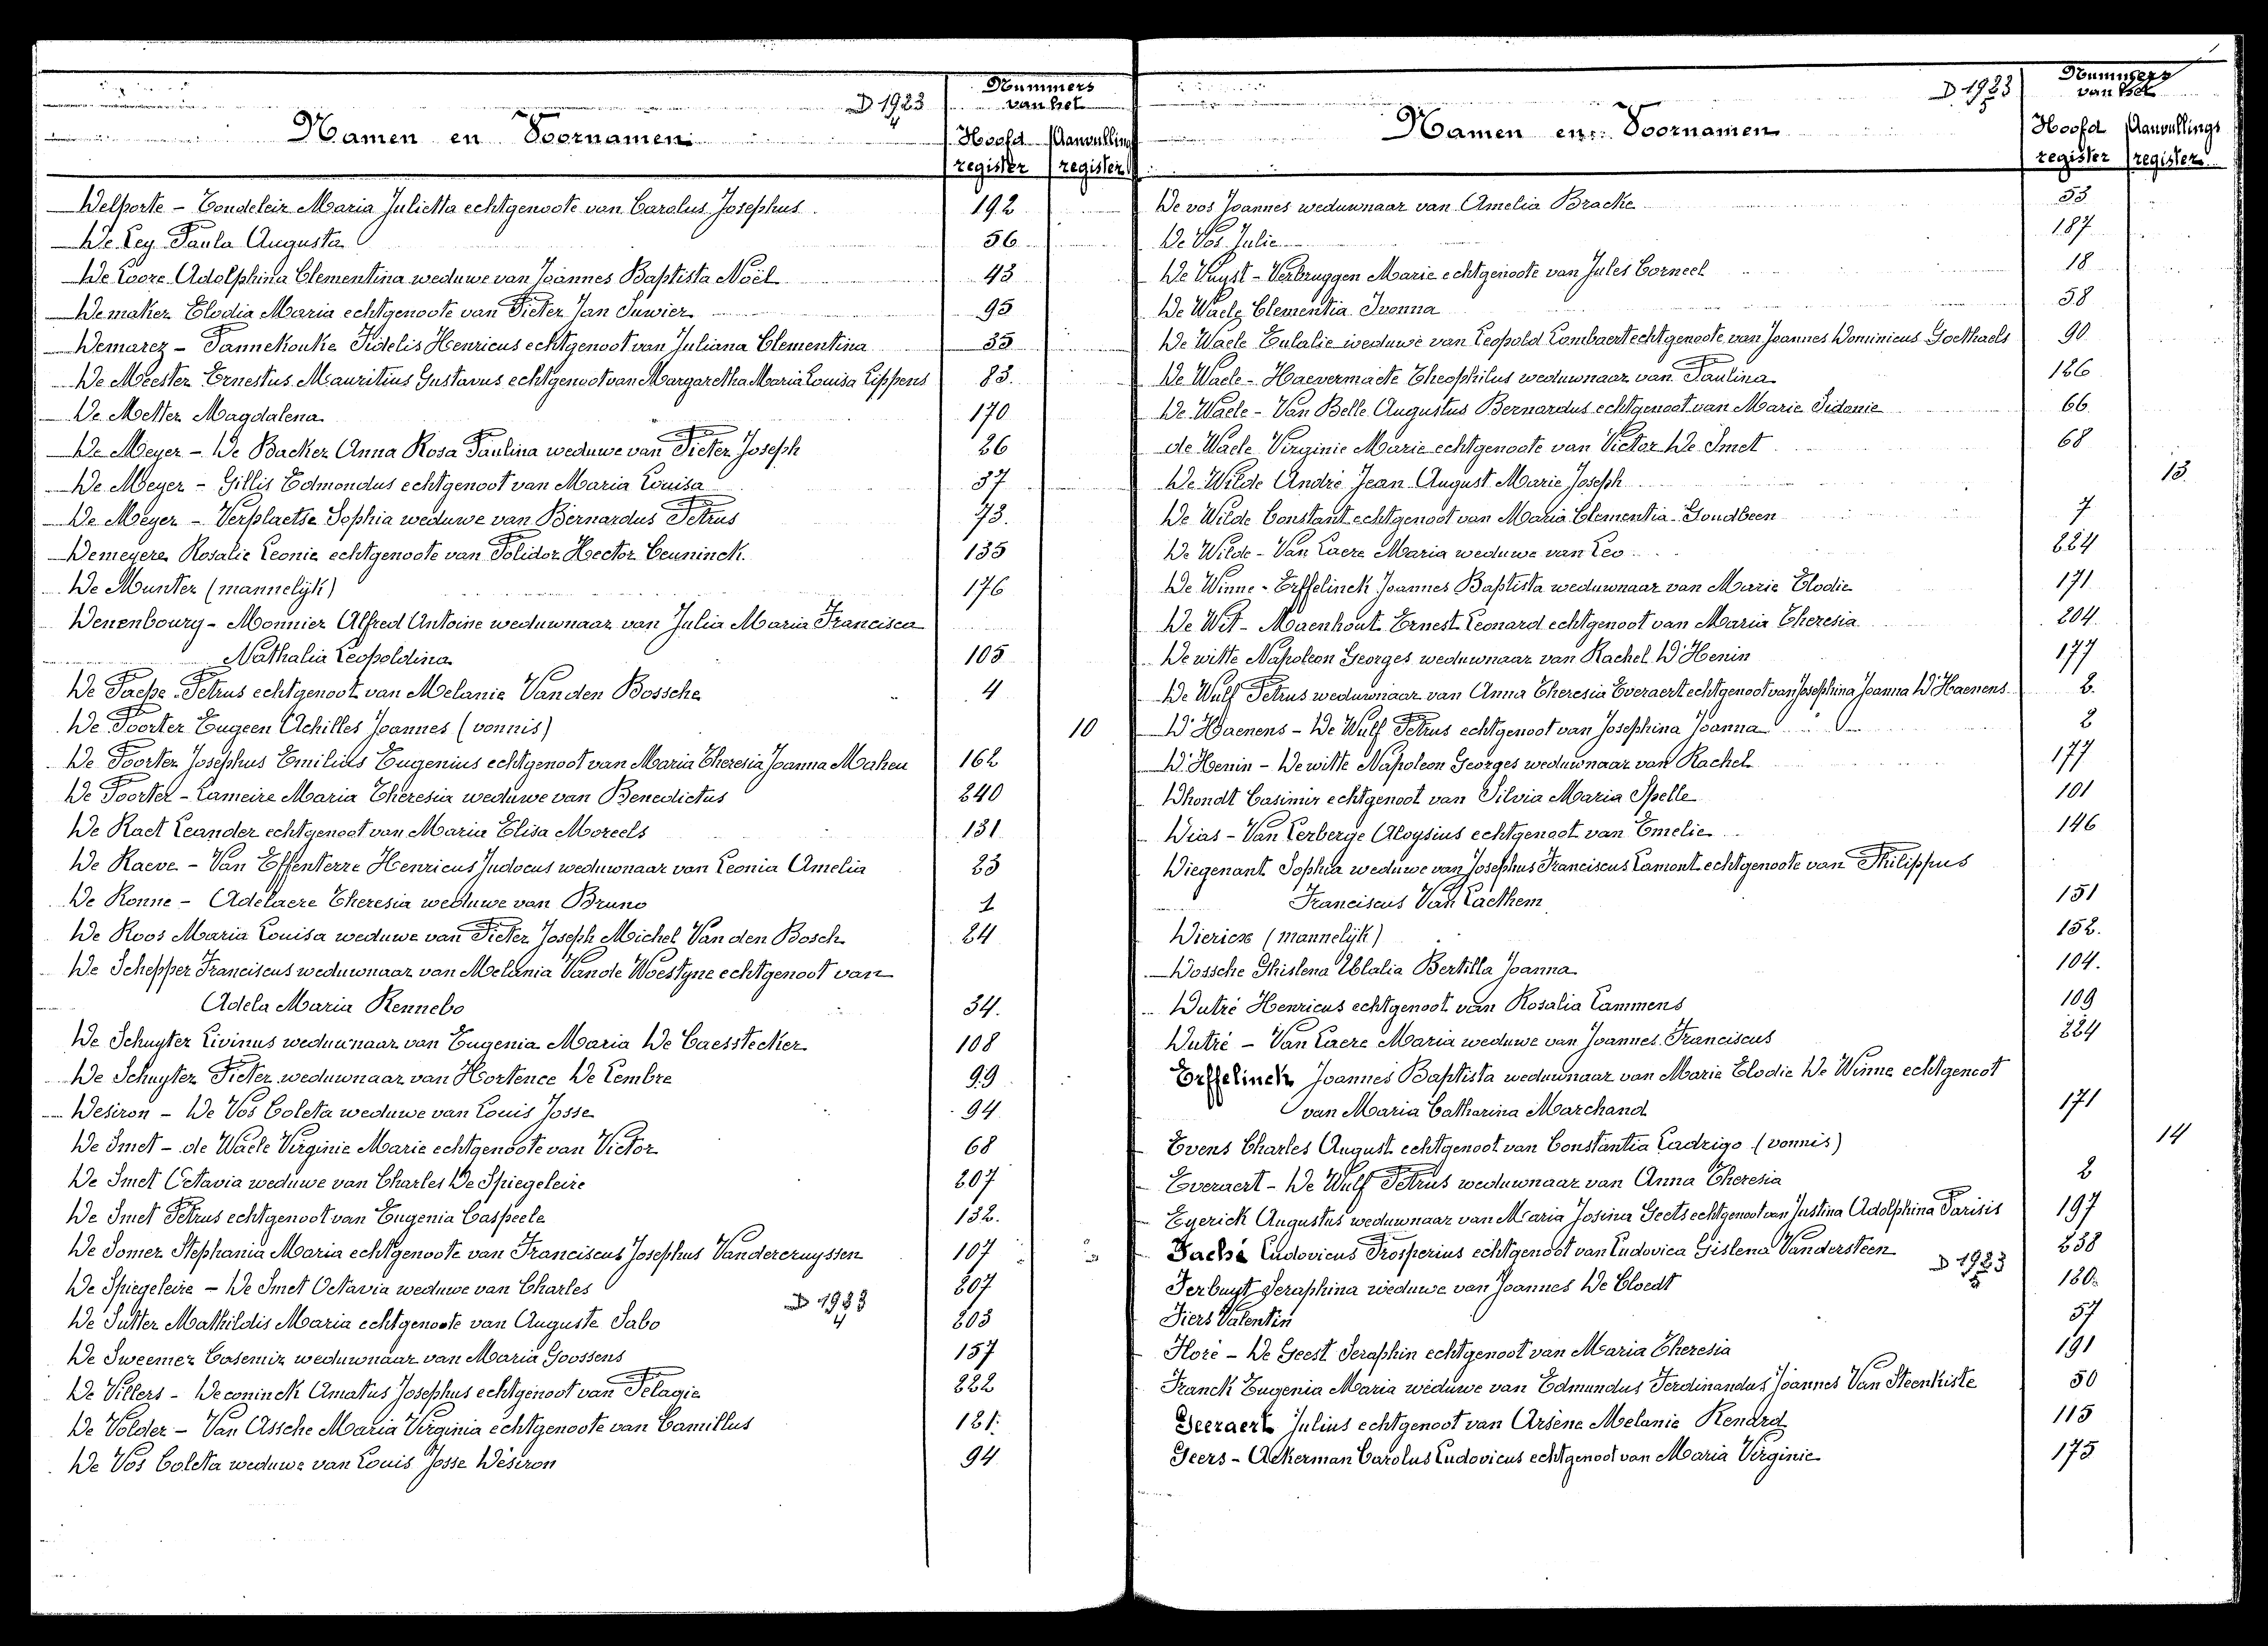 D 1923
4
Nummers
van het
Namen en Voornamen
Hoofd Aanvullings
register register
Delporte - Tondeleir Maria Julietta echtgenoote van Carolus Josephus 192
De Ley Paula Augusta 56
De Loore Adolphina Clementina weduwe van Joannes Baptista Noël 43
Demaker Elodia Maria echtgenoote van Pieter Jan Suwier 95
Demarez - Pannekouke Fidelis Henricus echtgenoot van Juliana Clementina 35
De Meester Ernestus Mauritius Gustavus echtgenoot van Margaretha Maria Louisa Lippens 83.
De Metter Magdalena 170
De Meyer - De Backer Anna Rosa Paulina weduwe van Pieter Joseph 26
De Meyer - Gillis Edmondus echtgenoot van Maria Louisa 37
De Meyer - Verplaetse Sophia weduwe van Bernardus Petrus 73.
Demeyere Rosalie Leonie echtgenoote van Polidor Hector Ceuninck 135
De Munter (mannelijk) 176
Denenbourg - Monnier Alfred Antoine weduwnaar van Julia Maria Francisca
Nathalia Leopoldina 105
De Paepe Petrus echtgenoot van Melanie Van den Bossche 4
De Poorter Eugeen Achilles Joannes (vonnis) 10
De Poorter Josephus Emilius Eugenius echtgenoot van Maria Theresia Joanna Maheu 162
De Poorter - Lameire Maria Theresia weduwe van Benedictus 240
De Raet Leander echtgenoot van Maria Elisa Moreels 131
De Raeve - Van Effenterre Henricus Judocus weduwnaar van Leonia Amelia 23
De Ronne - Adelaere Theresia weduwe van Bruno 1
De Roos Maria Louisa weduwe van Pieter Joseph Michel Van den Bosch 24
De Schepper Franciscus weduwnaar van Melania Van de Woestyne echtgenoot van
Adela Maria Rennebo 34.
De Schuyter Livinus weduwnaar van Eugenia Maria De Caesstecker 108
De Schuyter Pieter weduwnaar van Hortence De Lembre 99
Desiron - De Vos Coleta weduwe van Louis Josse 94
De Smet - de Waele Virginie Marie echtgenoote van Victor 68
De Smet Octavia weduwe van Charles De Spiegeleire 207
De Smet Petrus echtgenoot van Eugenia Caspeele 132.
De Somer Stephania Maria echtgenoote van Franciscus Josephus Vandercruyssen 107
De Spiegeleire - De Smet Octavia weduwe van Charles 207
D 1923
4
De Sutter Mathildis Maria echtgenoote van Auguste Sabo 203
De Sweemer Casemir weduwnaar van Maria Goossens 157
De Villers - Deconinck Amatus Josephus echtgenoot van Pelagie 222
De Volder - Van Assche Maria Virginia echtgenoote van Camillus 121.
De Vos Coleta weduwe van Louis Josse Désiron 94
D 1923
5
Nummers
van het
Namen en Voornamen
Hoofd Aanvullings
register register
De vos Joannes weduwnaar van Amelia Bracke 53
De Vos Julie 187
De Vuyst - Verbruggen Marie echtgenoote van Jules Corneel 18
De Waele Clementia Ivonna 58
De Waele Eulalie weduwe van Leopold Lombaert echtgenoote van Joannes Dominicus Goethaels 90
De Waele - Haevermaete Theophilus weduwnaar van Paulina 126
De Waele - Van Belle Augustus Bernardus echtgenoot van Marie Sidonie 66
de Waele Virginie Marie echtgenoote van Victor De Smet 68
De Wilde André Jean August Marie Joseph 13.
De Wilde Constant echtgenoot van Maria Clementia Goudbeen 7
De Wilde - Van Laere Maria weduwe van Leo 224
De Winne - Erffelinck Joannes Baptista weduwnaar van Marie Elodie 171
De Wit - Maenhout Ernest Leonard echtgenoot van Maria Theresia 204
De witte Napoleon Georges weduwnaar van Rachel D'Henin 177
De Wulf Petrus weduwnaar van Anna Theresia Everaert echtgenoot van Josephina Joanna D'Haenens 2.
D'Haenens - De Wulf Petrus echtgenoot van Josephina Joanna 2
D'Henin - De witte Napoleon Georges weduwnaar van Rachel 177
Dhondt Casimir echtgenoot van Silvia Maria Spelle 101
Dias - Van Lerberge Aloysius echtgenoot van Emelie 146
Diegenant Sophia weduwe van Josephus Franciscus Lamont echtgenoote van Philippus
Franciscus Van Laethem 151
Diericx (mannelijk) 152.
Dossche Ghislena Ulalia Bertilla Joanna 104.
Dutré Henricus echtgenoot van Rosalia Lammens 109
Dutré - Van Laere Maria weduwe van Joannes Franciscus 224
Erffelinck Joannes Baptista weduwnaar van Marie Elodie De Winne echtgenoot
van Maria Catharina Marchand 171
Evens Charles August echtgenoot van Constantia Ladrigo (vonnis) 14
Everaert - De Wulf Petrus weduwnaar van Anna Theresia 2
Eyerick Augustus weduwnaar van Maria Josina Geets echtgenoot van Justina Adolphina Parisis 197
Faché Ludovicus Prosperius echtgenoot van Ludovica Gislena Vandersteen 238
D 1923
5
Ferbuyt Seraphina weduwe van Joannes De Cloedt 120.
Fiers Valentin 57
Floré - De Geest Seraphin echtgenoot van Maria Theresia 191
Franck Eugenia Maria weduwe van Edmundus Ferdinandus Joannes Van Steenkiste 50
Geeraert Julius echtgenoot van Arsène Melanie Renard 115
Geers - Ackerman Carolus Ludovicus echtgenoot van Maria Virginie 175